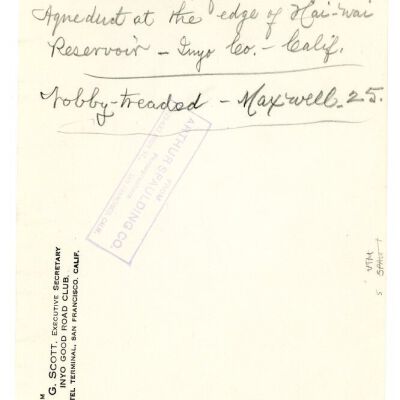 Aqueduct at the edge of Hai-wai
Reservoir - Inyo Co. - Calif.
Nobby-treaded - Maxwell-25.
FROM
ARTHUR SPAULDING CO.
LOS ANGELES, CAL.
G. SCOTT, EXECUTIVE SECRETARY
INYO GOOD ROAD CLUB,
TEL TERMINAL, SAN FRANCISCO, CALIF.
VTM
S